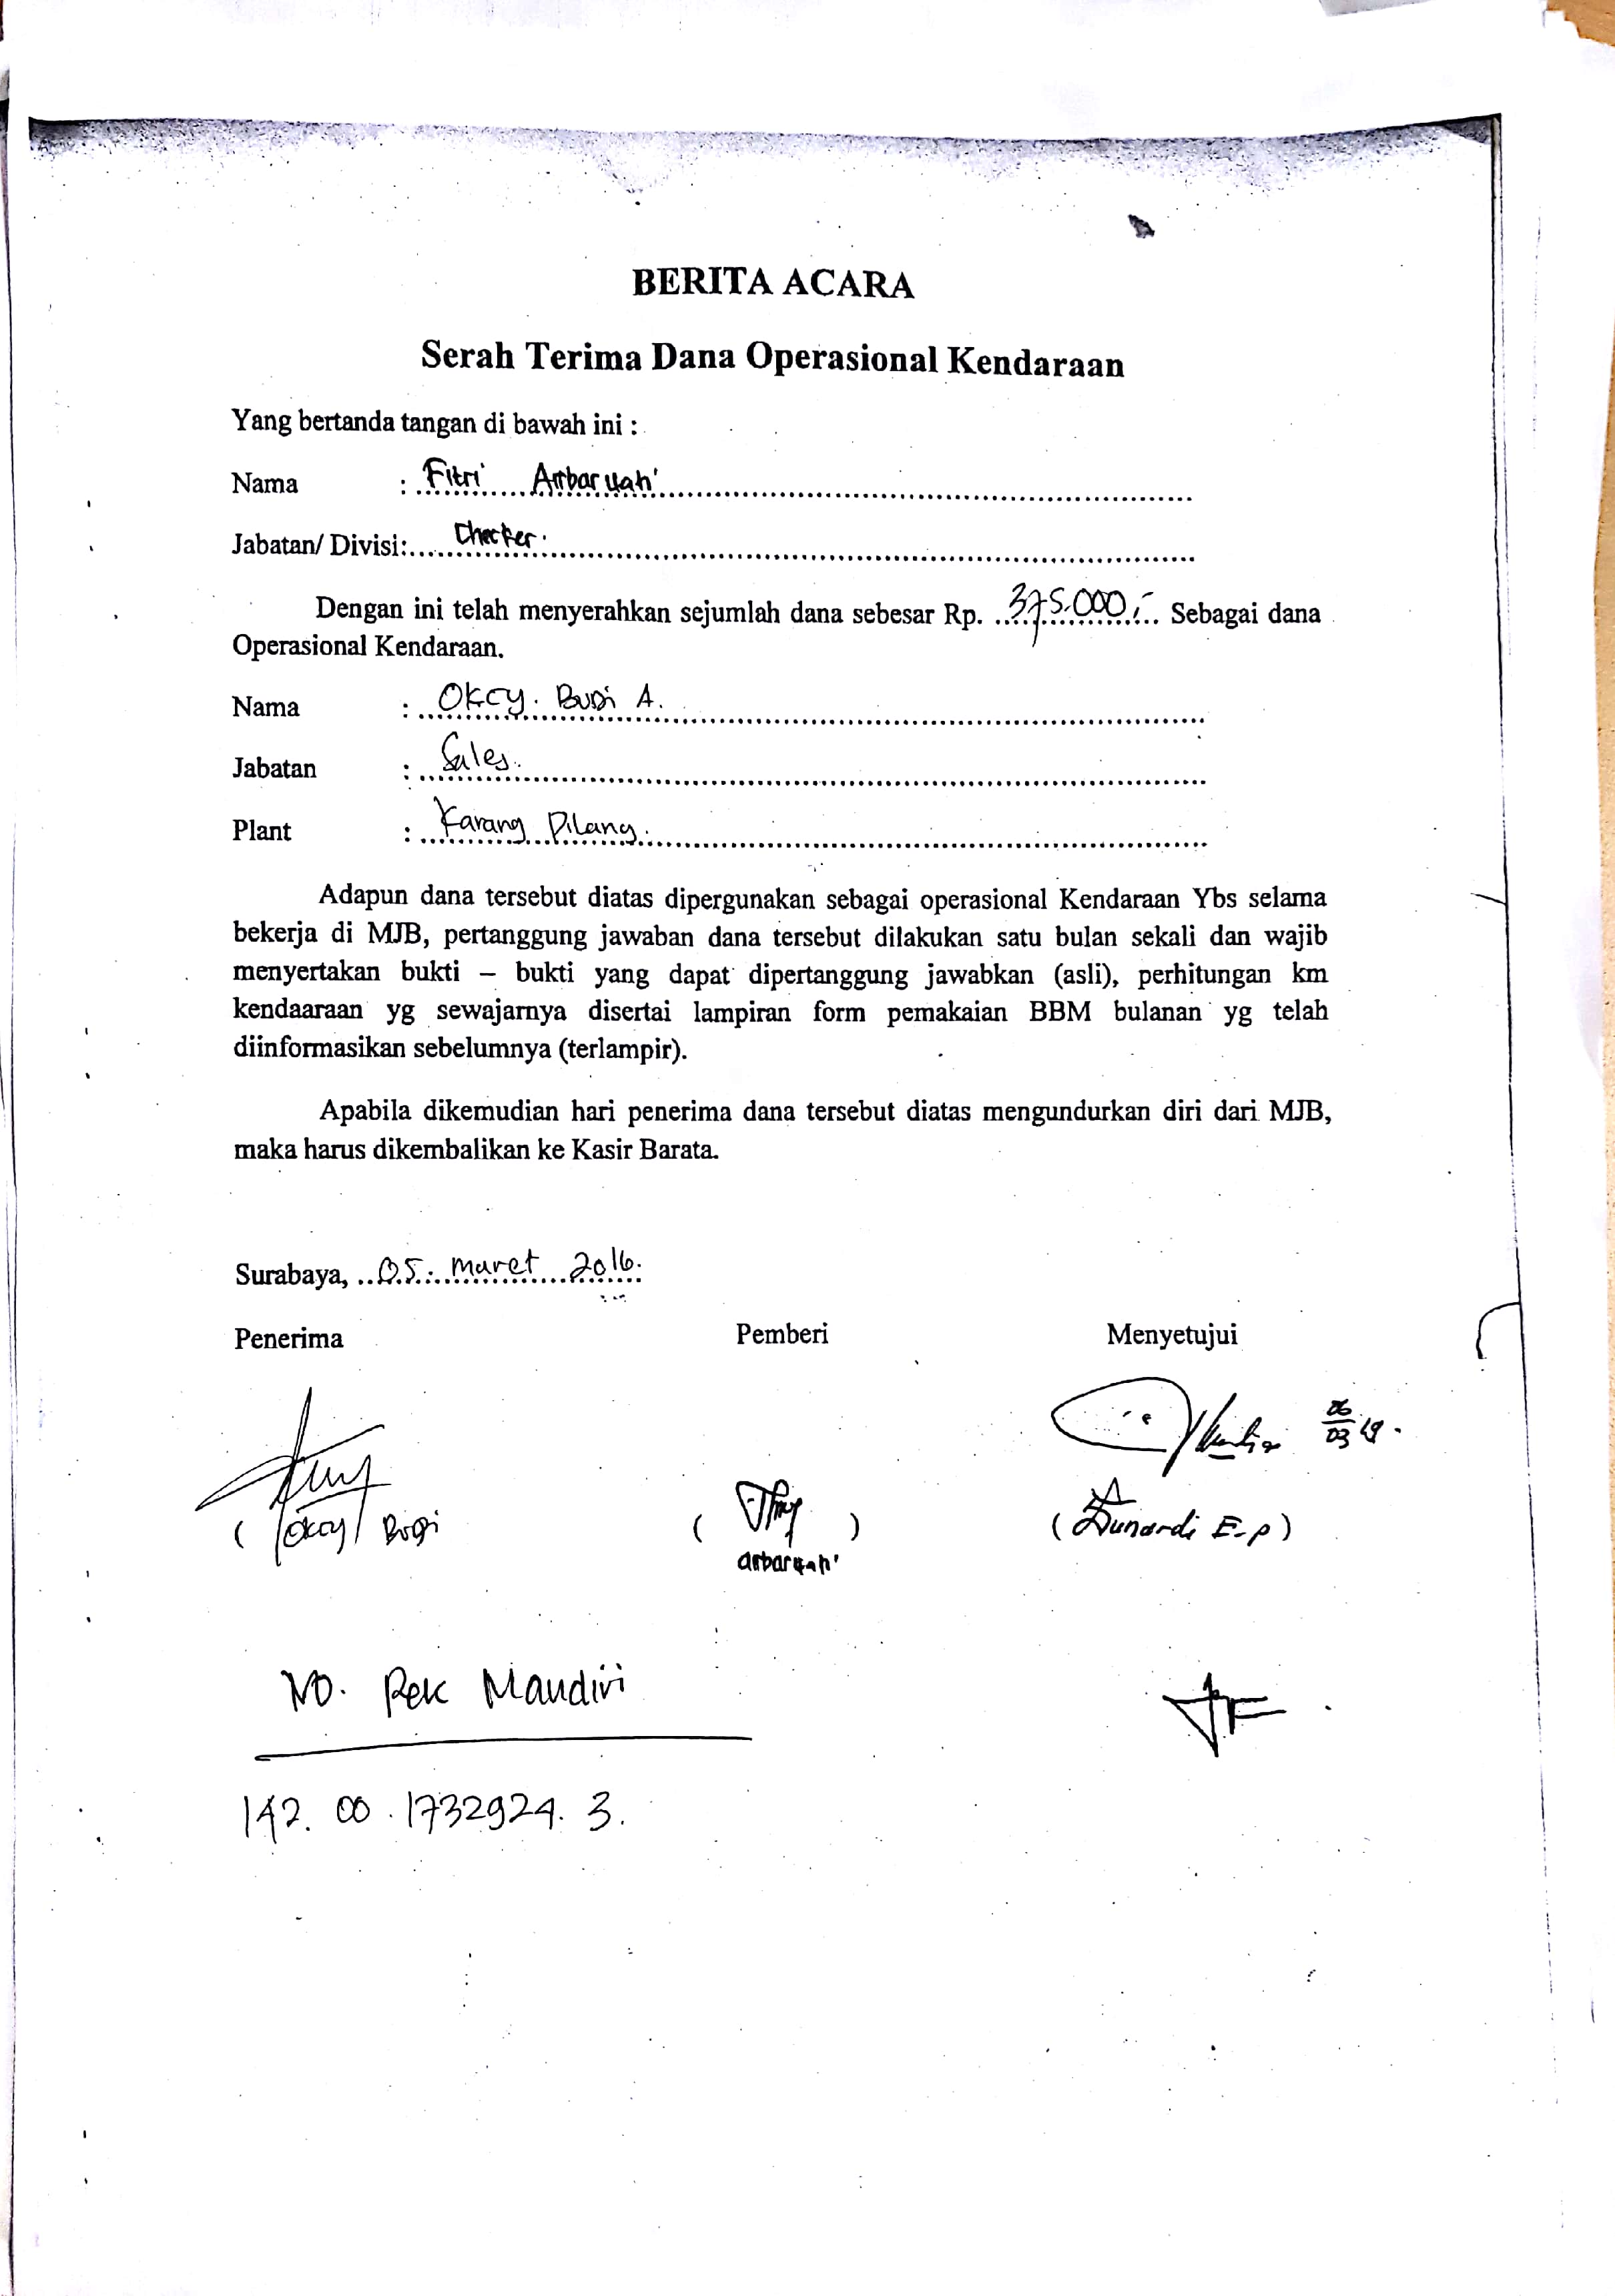 BERITA ACARA
Serah Terima Dana Operasional Kendaraan
Yang bertanda tangan di bawah ini :
Nama : Fitri Arbar'yah
Jabatan/ Divisi: Checker.
Dengan ini telah menyerahkan sejumlah dana sebesar Rp. 375.000,- Sebagai dana
Operasional Kendaraan.
Nama : Okcy. Budi A.
Jabatan : Sales.
Plant : Karang Pilang.
Adapun dana tersebut diatas dipergunakan sebagai operasional Kendaraan Ybs selama
bekerja di MJB, pertanggung jawaban dana tersebut dilakukan satu bulan sekali dan wajib
menyertakan bukti – bukti yang dapat dipertanggung jawabkan (asli), perhitungan km
kendaaraan yg sewajarnya disertai lampiran form pemakaian BBM bulanan yg telah
diinformasikan sebelumnya (terlampir).
Apabila dikemudian hari penerima dana tersebut diatas mengundurkan diri dari MJB,
maka harus dikembalikan ke Kasir Barata.
Surabaya, 05. Maret 2016.
Penerima Pemberi Menyetujui
06/03
( Okcy Budi ) ( ) ( Sunardi E.p )
No. Rek Mandiri
142. 00 . 1732924. 3.